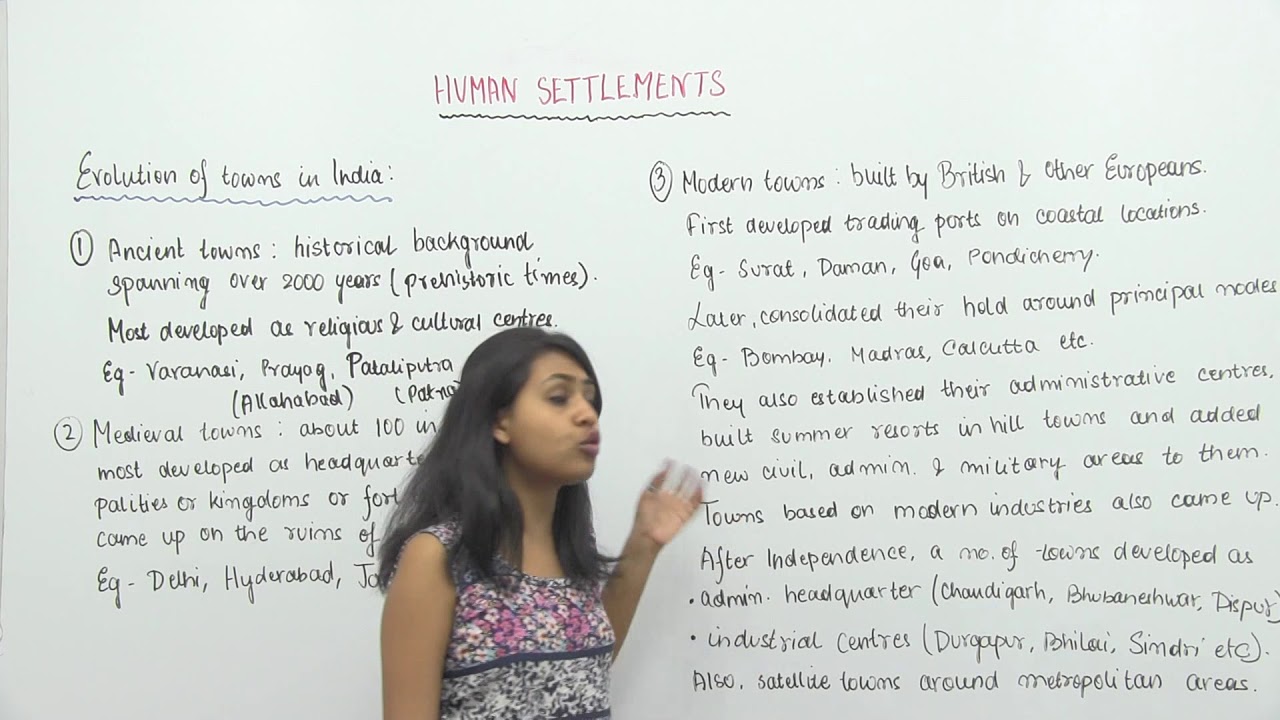 HUMAN SETTLEMENTS
Evolution of towns in India:
① Ancient towns : historical background
spanning over 2000 years (prehistoric times).
Most developed as religious & cultural centres.
Eg- Varanasi, Prayag, Pataliputra
(Allahabad) (Patna
② Medieval towns : about 100 in
most developed as headquarte
palities or kingdoms or fort
came up on the ruins of
Eg- Delhi, Hyderabad,
③ Modern towns : built by British & Other Europeans.
First developed trading ports on coastal locations.
Eg- Surat, Daman, Goa, Pondicherry.
Later, consolidated their hold around principal nodes
Eg- Bombay, Madras, Calcutta etc.
They also established their administrative centres,
built summer resorts in hill towns and added
new civil, admin. & military areas to them.
Towns based on modern industries also came up.
After Independence, a no. of towns developed as
• admin. headquarter (Chandigarh, Bhubaneshwar, Dispur)
• industrial centres (Durgapur, Bhilai, Sindri etc).
Also, satellite towns around metropolitan areas.